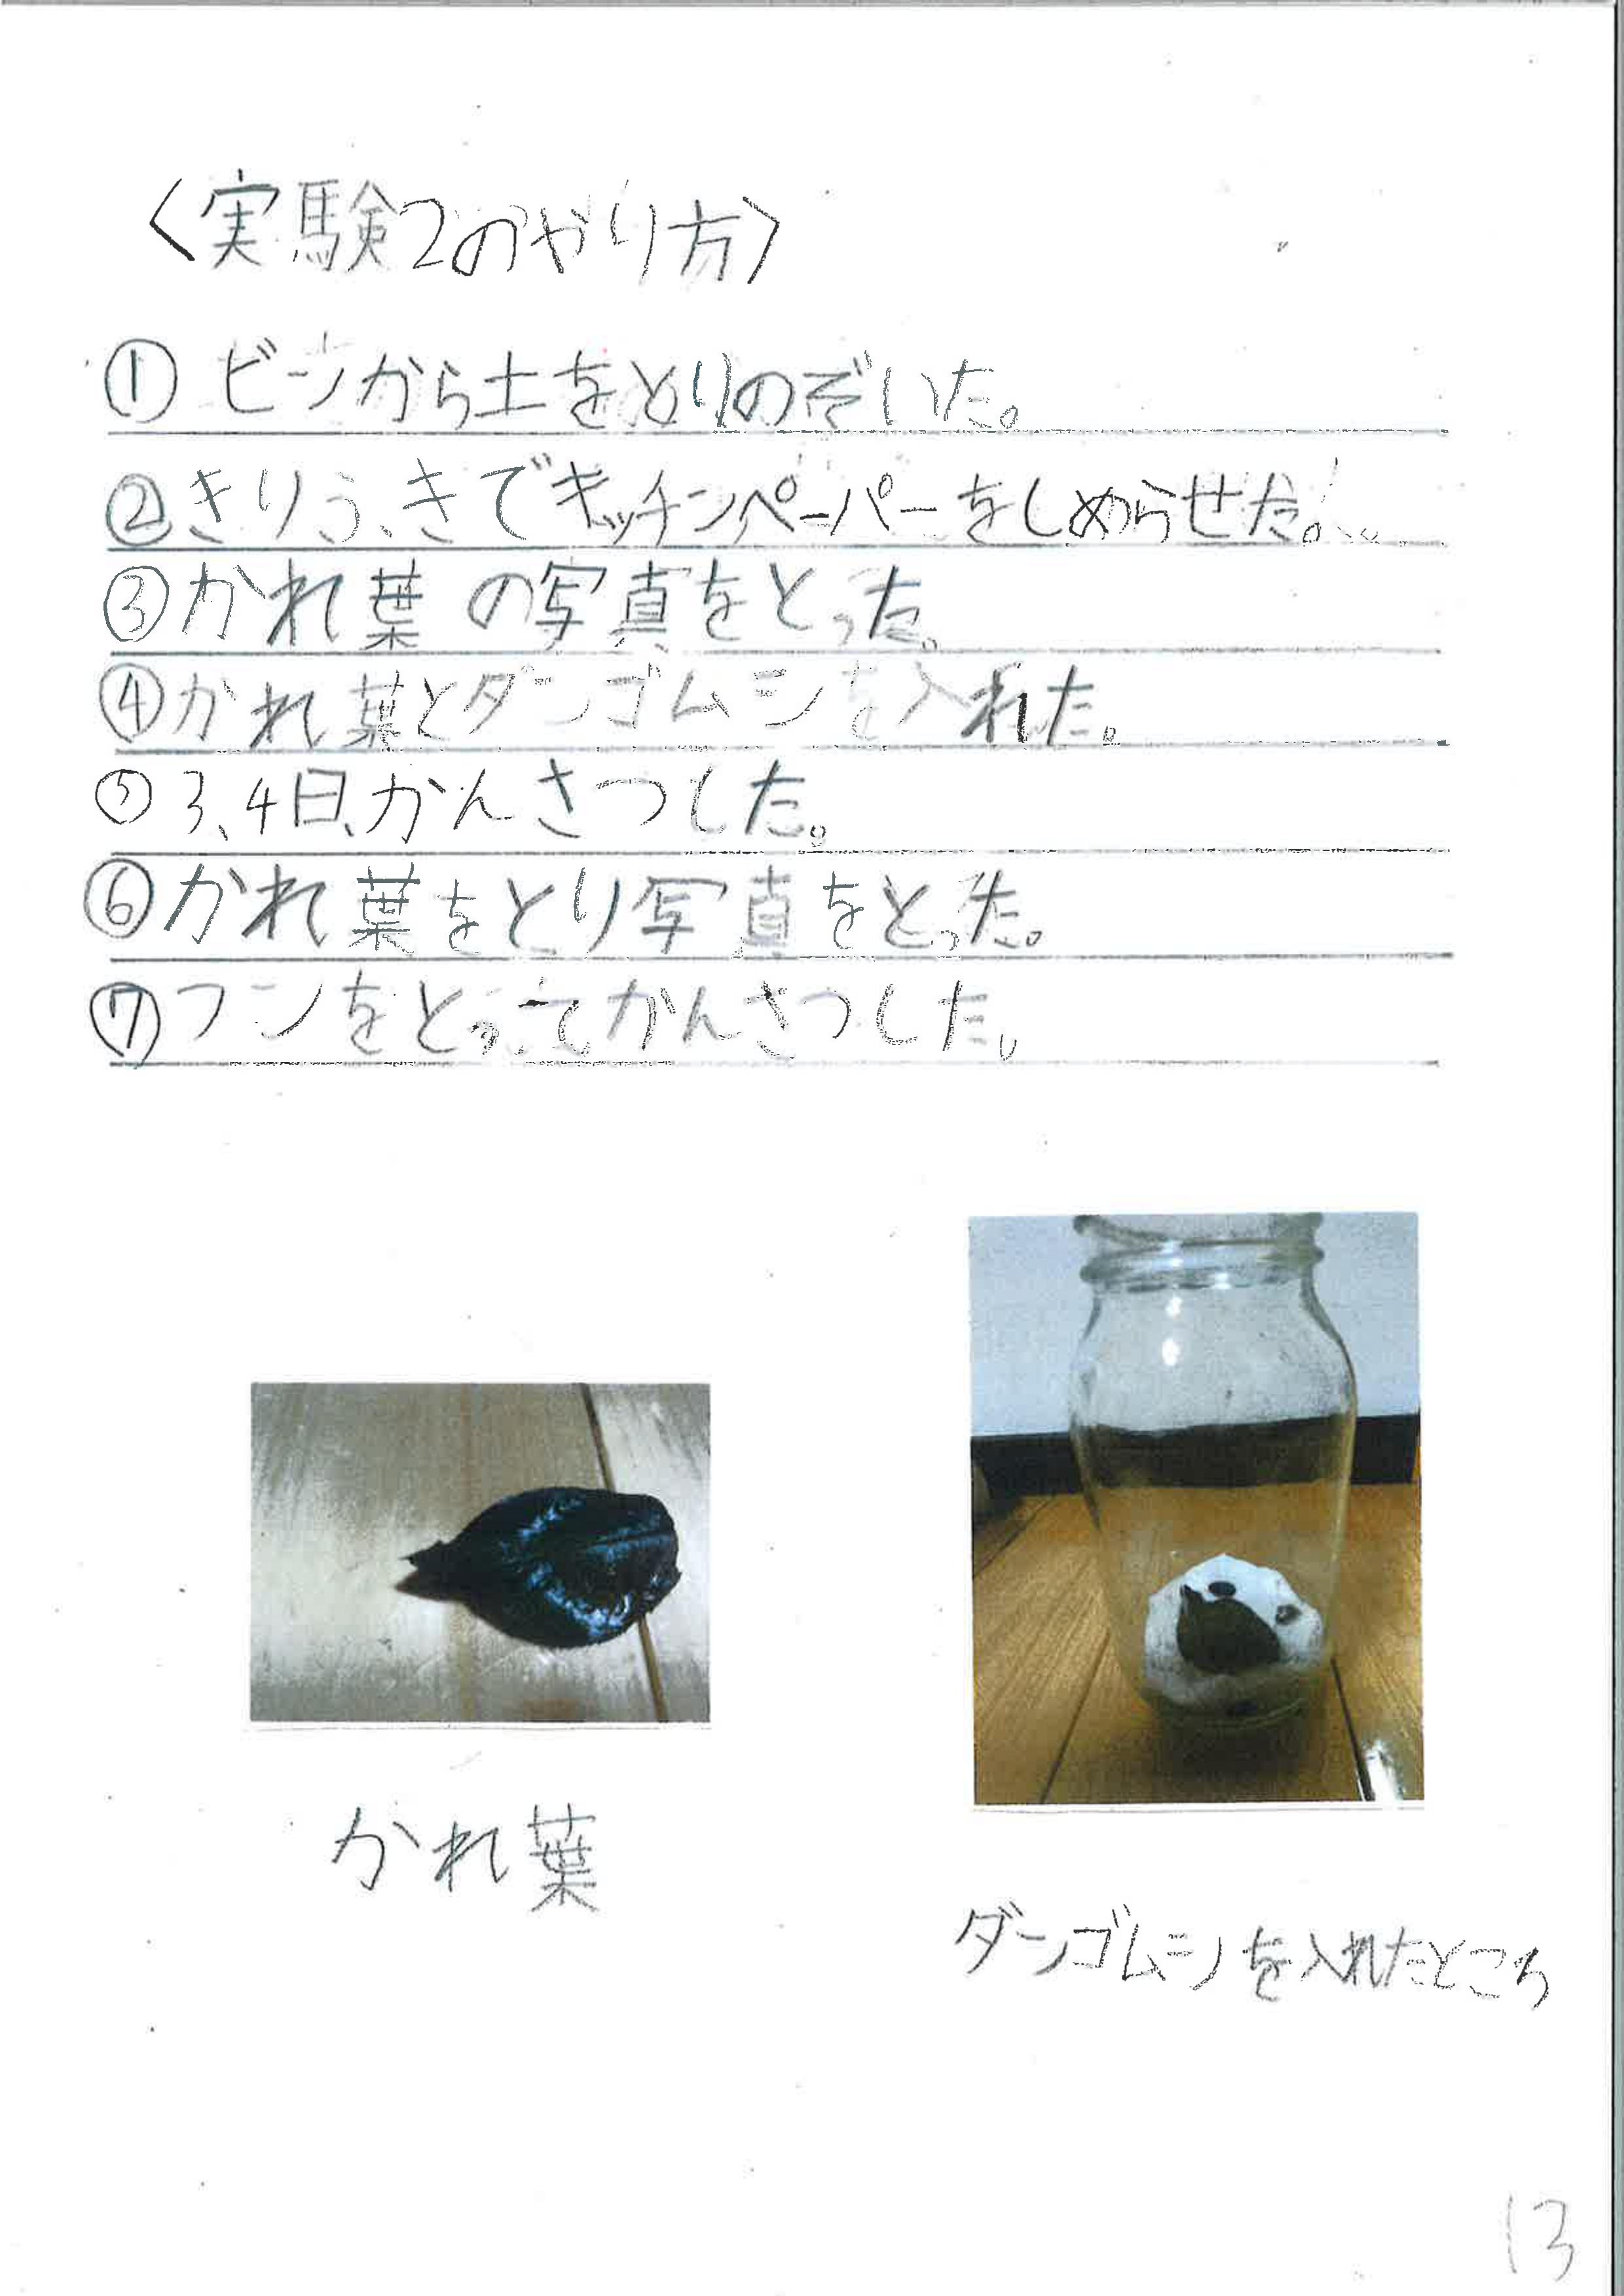 〈実験2のやり方〉
① ビンから土をとりのぞいた。
②きりふきでキッチンペーパーをしめらせた。
③かれ葉の写真をとった。
④かれ葉とダンゴムシを入れた。
⑤3、4日、かんさつした。
⑥かれ葉をとり写真をとった。
⑦フンをとってかんさつした。
かれ葉
ダンゴムシを入れたところ
13